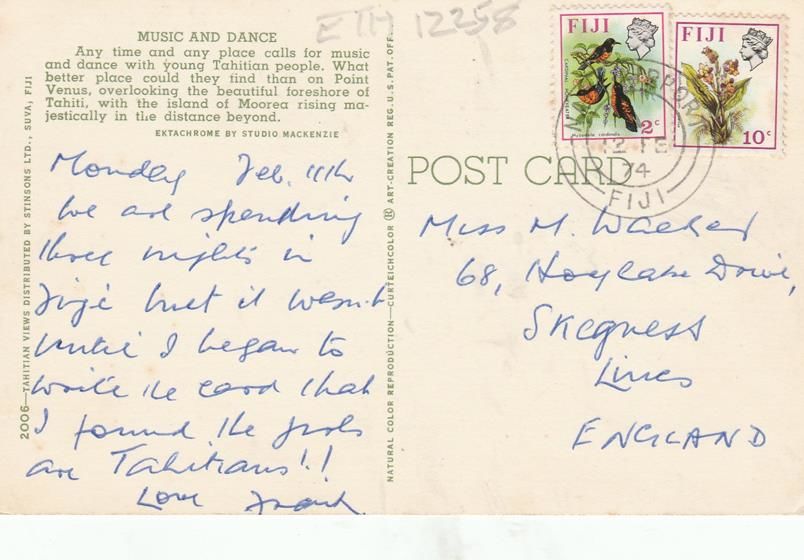 ETH 12258
MUSIC AND DANCE
Any time and any place calls for music
and dance with young Tahitian people. What
better place could they find than on Point
Venus, overlooking the beautiful foreshore of
Tahiti, with the island of Moorea rising ma-
jestically in the distance beyond.
EKTACHROME BY STUDIO MACKENZIE
2006—TAHITIAN VIEWS DISTRIBUTED BY STINSONS LTD., SUVA, FIJI
Monday Feb. 11th
We are spending
three nights in
Fiji but it wasn't
until I began to
write the card that
I found the girls
are Tahitians!!
Love Frank.
NATURAL COLOR REPRODUCTION—CURTEICHCOLOR ® ART-CREATION REG. U.S. PAT. OFF.
POST CARD
FIJI
CARDINAL HONEYEATER
Myzomela cardinalis
2c
FIJI
10c
AIRPORT
12 FE
74
FIJI
Miss M. Walker
68, Hoylake Drive,
Skegness
Lincs
ENGLAND